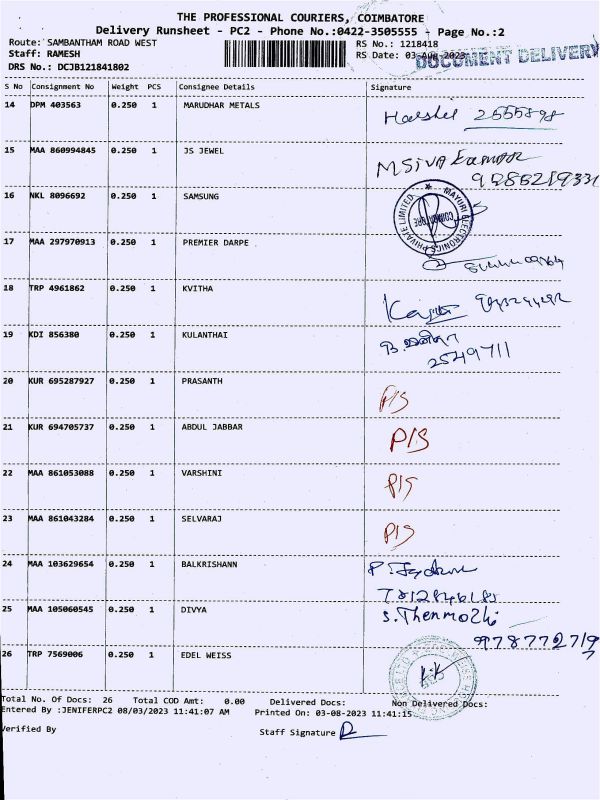 THE PROFESSIONAL COURIERS, COIMBATORE
Delivery Runsheet - PC2 - Phone No.:0422-3505555 - Page No.:2
Route: SAMBANTHAM ROAD WEST RS No.: 1218418
Staff: RAMESH RS Date: 03-Aug-2023 DOCUMENT DELIVERY
DRS No.: DCJB121841802
S No Consignment No Weight PCS Consignee Details Signature
14 DPM 403563 0.250 1 MARUDHAR METALS
15 MAA 860994845 0.250 1 JS JEWEL M Siva Kumar
16 NKL 8096692 0.250 1 SAMSUNG MAYURI ELECTRONICS PRIVATE LIMITED COIMBATORE
17 MAA 297970913 0.250 1 PREMIER DARPE
18 TRP 4961862 0.250 1 KVITHA
19 KDI 856380 0.250 1 KULANTHAI
2549711
20 KUR 695287927 0.250 1 PRASANTH P/S
21 KUR 694705737 0.250 1 ABDUL JABBAR P/S
22 MAA 861053088 0.250 1 VARSHINI P/S
23 MAA 861043284 0.250 1 SELVARAJ P/S
24 MAA 103629654 0.250 1 BALKRISHANN
25 MAA 105060545 0.250 1 DIVYA S. Thenmozhi
9787727197
26 TRP 7569006 0.250 1 EDEL WEISS
Total No. Of Docs: 26 Total COD Amt: 0.00 Delivered Docs: Non Delivered Docs:
Entered By :JENIFERPC2 08/03/2023 11:41:07 AM Printed On: 03-08-2023 11:41:15
Verified By Staff Signature